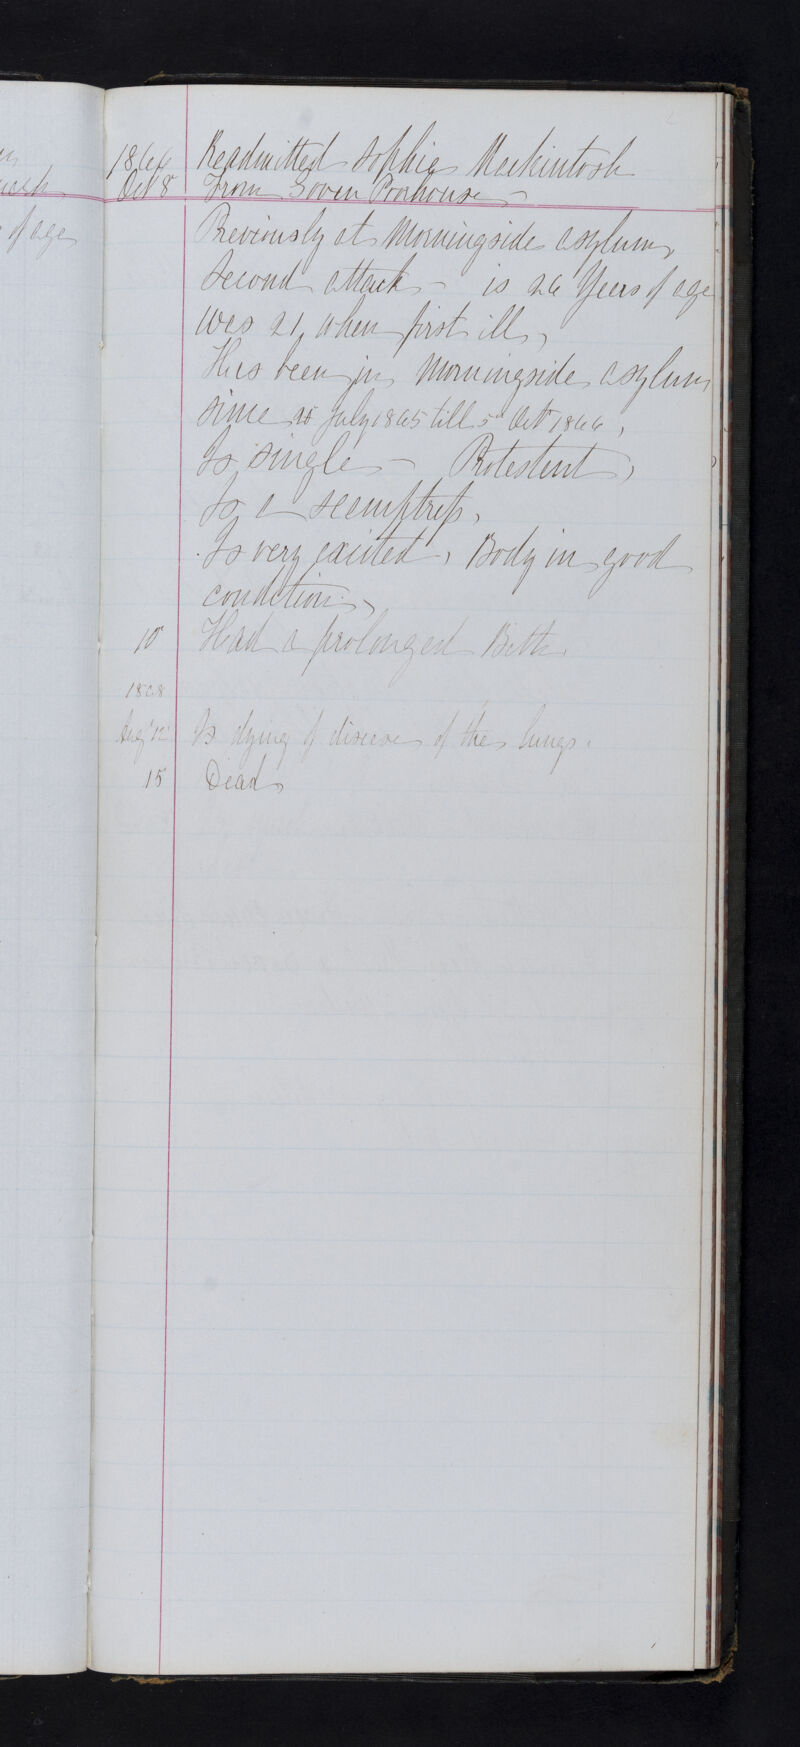 1866 Readmitted Sophia Mackintosh
Oct 8 From Govan Poorhouse -
of age
Previously at Morningside asylum,
Second attack - is 26 Years of age
was 21, when first ill,
Has been in Morningside asylum
since July 1865 till 5th Oct 1866,
Is single - Protestant,
Is a seamstress,
Is very excited, Body in good
condition,
10 Had a prolonged Bath.
1868
Aug 12 Is dying of disease of the lungs.
15 Dead,